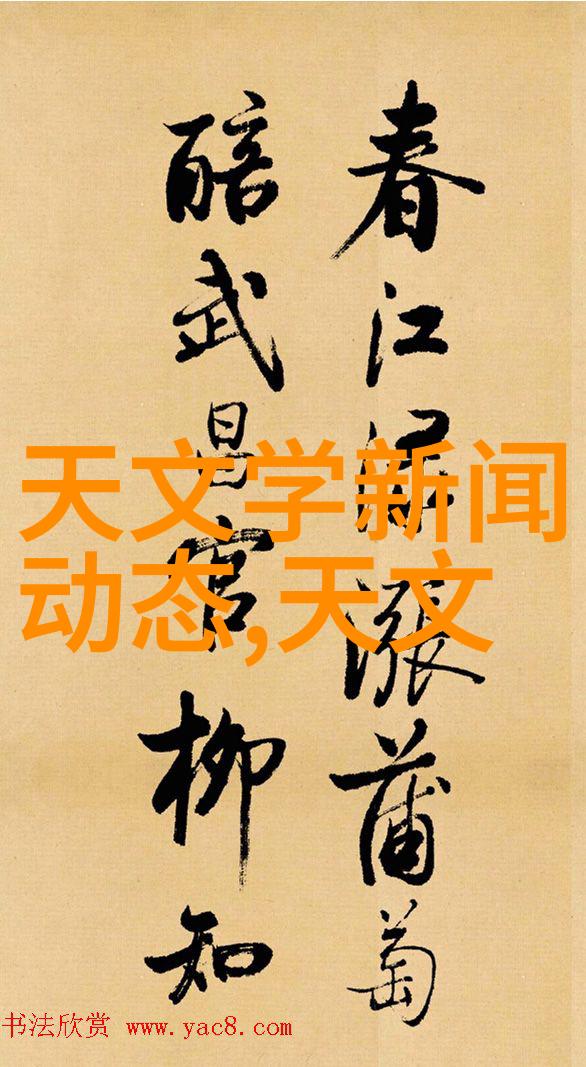 春江渌涨蒲萄
醅武昌官柳知
天文学新闻
动态,天文
书法欣赏 www.yac8.com